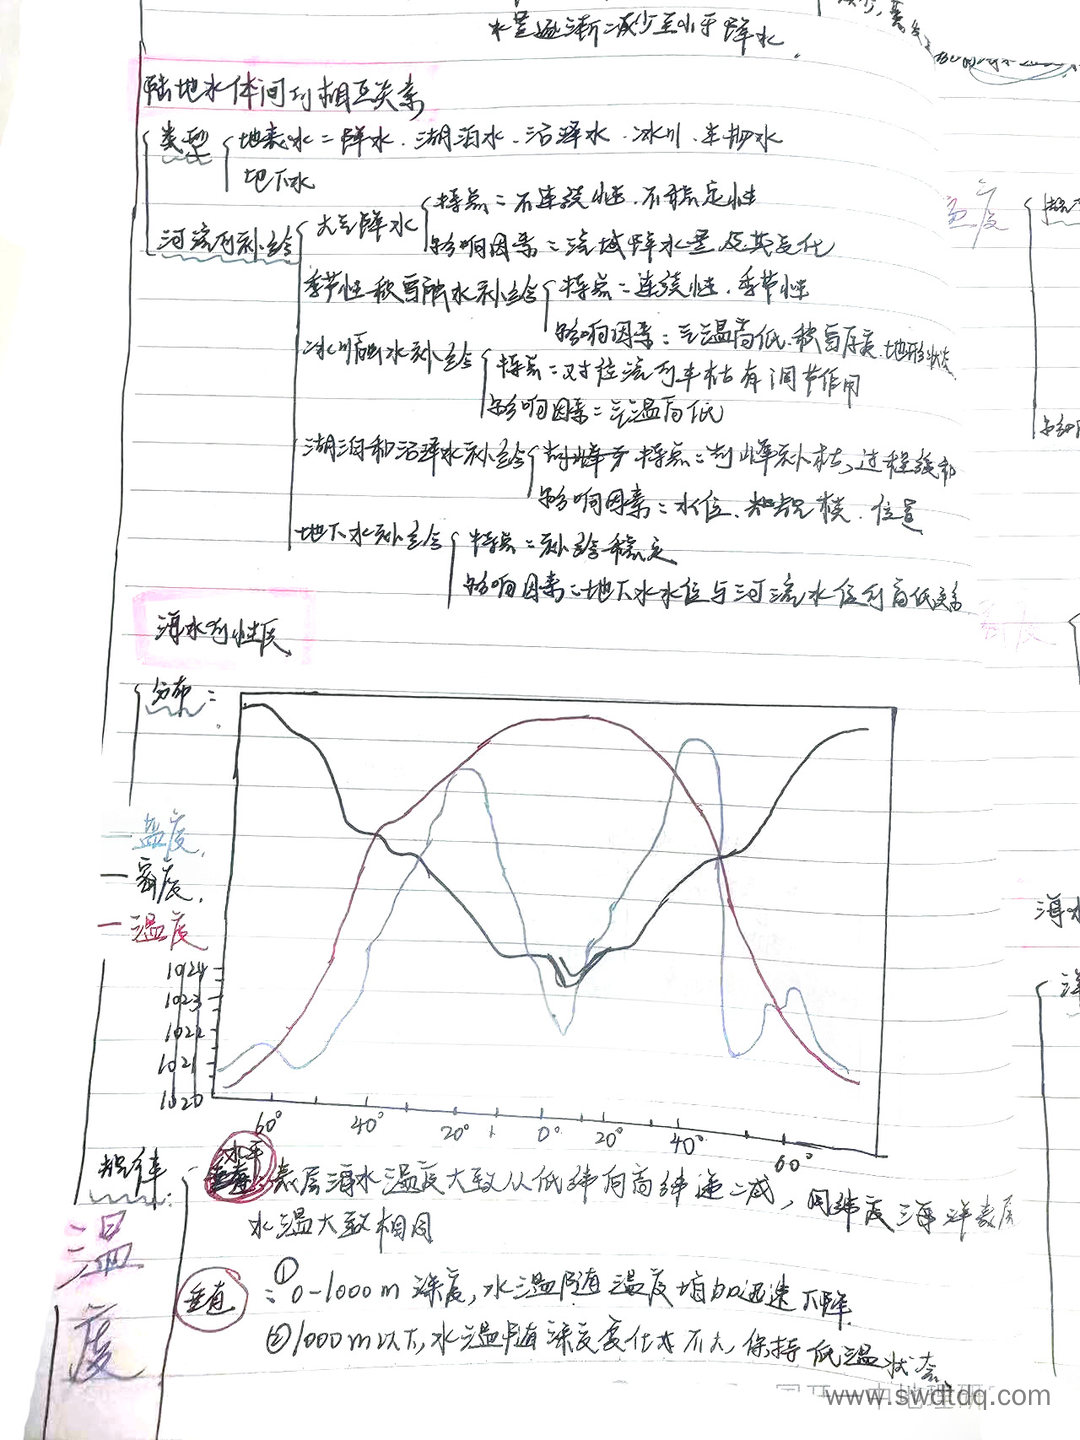 水量逐渐减少至小于降水.
减少,蒸发
陆地水体间的相互关系
类型
地表水:降水、湖泊水、沼泽水、冰川、生物水
地下水
河流的补给
大气降水
特点:不连续性、不稳定性
影响因素:流域降水量及其变化
季节性积雪融水补给
特点:连续性、季节性
影响因素:气温高低、积雪厚度、地形状态
冰川融水补给
特点:对径流的丰枯有调节作用
影响因素:气温高低
湖泊和沼泽水补给
特点:削峰补枯、过程缓和
影响因素:水位、规模、位置
地下水补给
特点:补给稳定
影响因素:地下水水位与河流水位的高低关系
海水的性质
分布:
盐度
密度
温度
1024
1023
1022
1021
1020
60° 40° 20° 0° 20° 40° 60°
规律:
水平
表层海水温度大致从低纬向高纬递减,同纬度海洋表层
水温大致相同
温度
垂直
:①0-1000m深度,水温随温度增加迅速下降
②1000m以下,水温随深度变化不大,保持低温状态
盐度
密度
海水
www.swdtdq.com